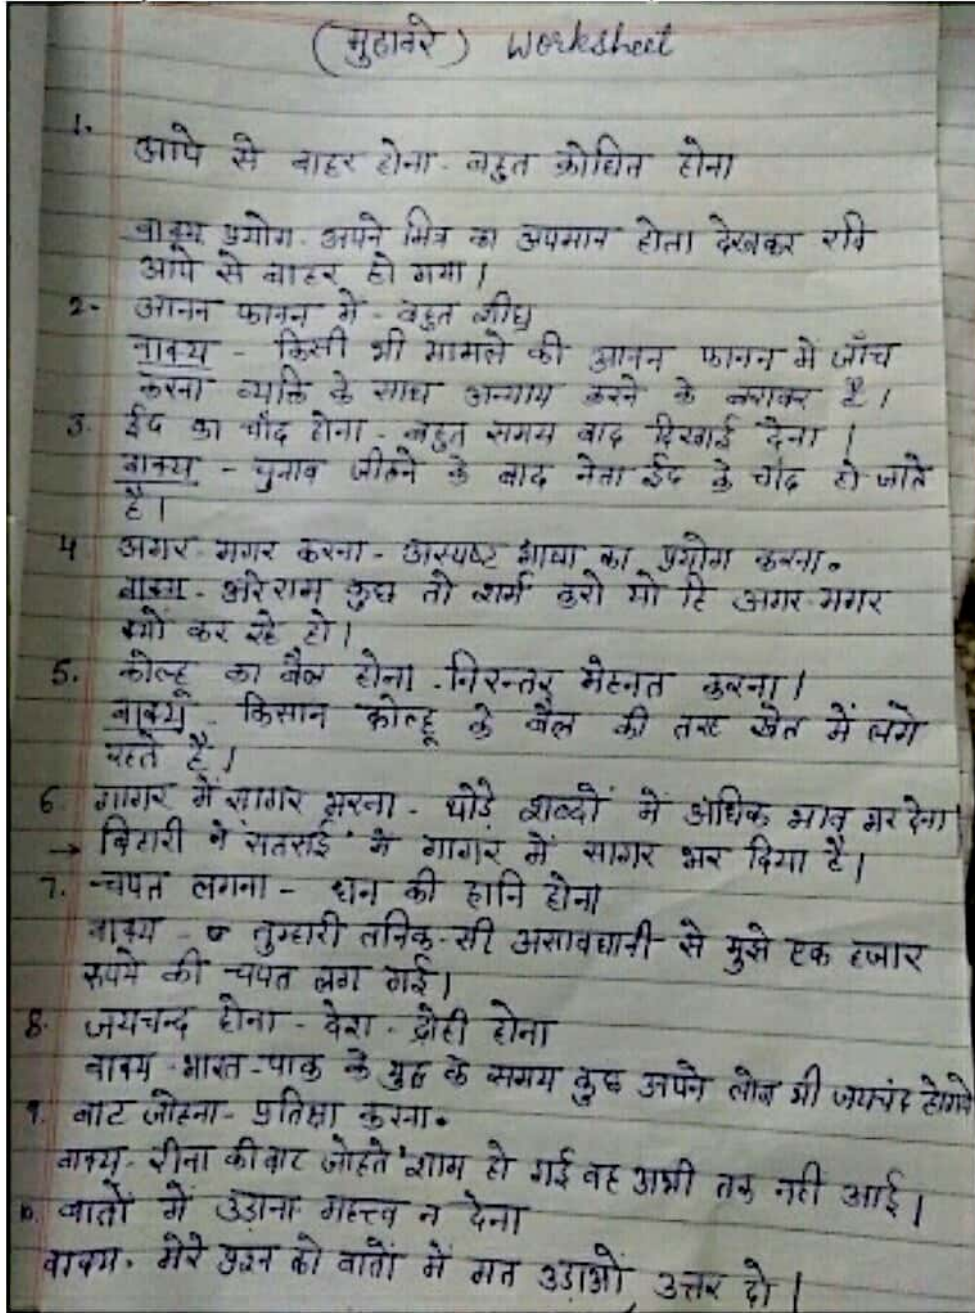 (मुहावरे) Worksheet
1.
आपे से बाहर होना - बहुत क्रोधित होना
वाक्य प्रयोग - अपने मित्र का अपमान होता देखकर रवि
आपे से बाहर हो गया।
2- आनन फानन में - बहुत शीघ्र
वाक्य - किसी भी मामले की आनन फानन में जाँच
करना व्यक्ति के साथ अन्याय करने के बराबर है।
3. ईद का चाँद होना - बहुत समय बाद दिखाई देना।
वाक्य - चुनाव जीतने के बाद नेता ईद के चाँद हो जाते
है।
4 अगर-मगर करना - अस्पष्ट भाषा का प्रयोग करना.
वाक्य - अरे राम कुछ तो शर्म करो यो हि अगर-मगर
क्यों कर रहे हो।
5. कोल्हू का बैल होना - निरन्तर मेहनत करना।
वाक्य - किसान कोल्हू के बैल की तरह खेत में लगे
रहते है।
6. गागर में सागर भरना - थोड़े शब्दों में अधिक भाव भर देना।
→ बिहारी ने 'सतसई' में गागर में सागर भर दिया है।
7. चपत लगना - धन की हानि होना
वाक्य - तुम्हारी तनिक-सी असावधानी से मुझे एक हजार
रूपये की चपत लग गई।
8. जयचन्द होना - देश-द्रोही होना
वाक्य - भारत-पाक के युद्ध के समय कुछ अपने लोग भी जयचंद होगये
9. बाट जोहना - प्रतिक्षा करना.
वाक्य - रीना की बाट जोहते शाम हो गई वह अभी तक नही आई।
10. बातों में उड़ाना महत्त्व न देना
वाक्य. मेरे प्रश्न को बातों में मत उड़ाओ, उत्तर दो।